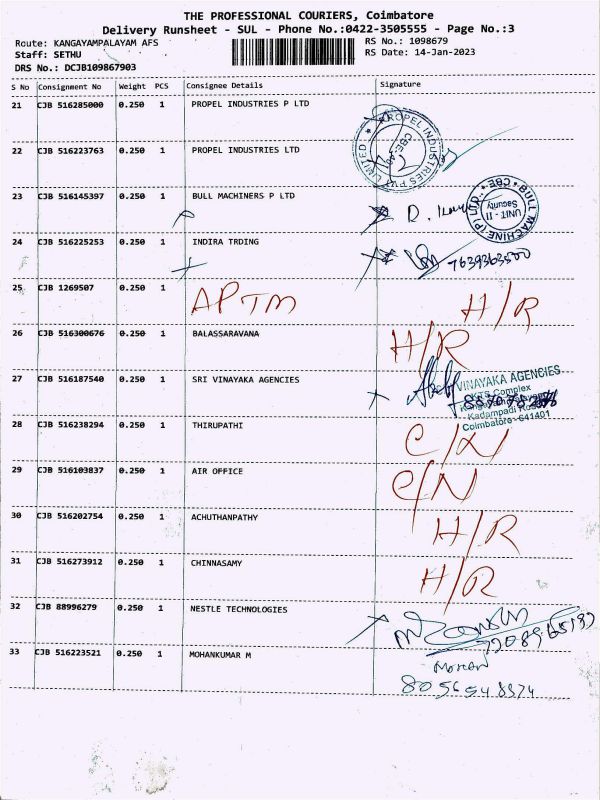 THE PROFESSIONAL COURIERS, Coimbatore
Delivery Runsheet - SUL - Phone No.:0422-3505555 - Page No.:3
Route: KANGAYAMPALAYAM AFS RS No.: 1098679
Staff: SETHU RS Date: 14-Jan-2023
DRS No.: DCJB109867903
S No Consignment No Weight PCS Consignee Details Signature
21 CJB 516285000 0.250 1 PROPEL INDUSTRIES P LTD
PROPEL INDUSTRIES PVT LIMITED
22 CJB 516223763 0.250 1 PROPEL INDUSTRIES LTD
23 CJB 516145397 0.250 1 BULL MACHINERS P LTD
BULL MACHINE (P) LTD., CBE
UNIT - II
Security
24 CJB 516225253 0.250 1 INDIRA TRDING
7639363500
25 CJB 1269507 0.250 1 APTM H/R
26 CJB 516300676 0.250 1 BALASSARAVANA H/R
27 CJB 516187540 0.250 1 SRI VINAYAKA AGENCIES
VINAYAKA AGENCIES
Complex
Kadampadi Road
Coimbatore-641401
28 CJB 516238294 0.250 1 THIRUPATHI C/N
29 CJB 516103837 0.250 1 AIR OFFICE C/N
30 CJB 516202754 0.250 1 ACHUTHANPATHY H/R
31 CJB 516273912 0.250 1 CHINNASAMY H/R
32 CJB 88996279 0.250 1 NESTLE TECHNOLOGIES
33 CJB 516223521 0.250 1 MOHANKUMAR M
Mohan
8056548874